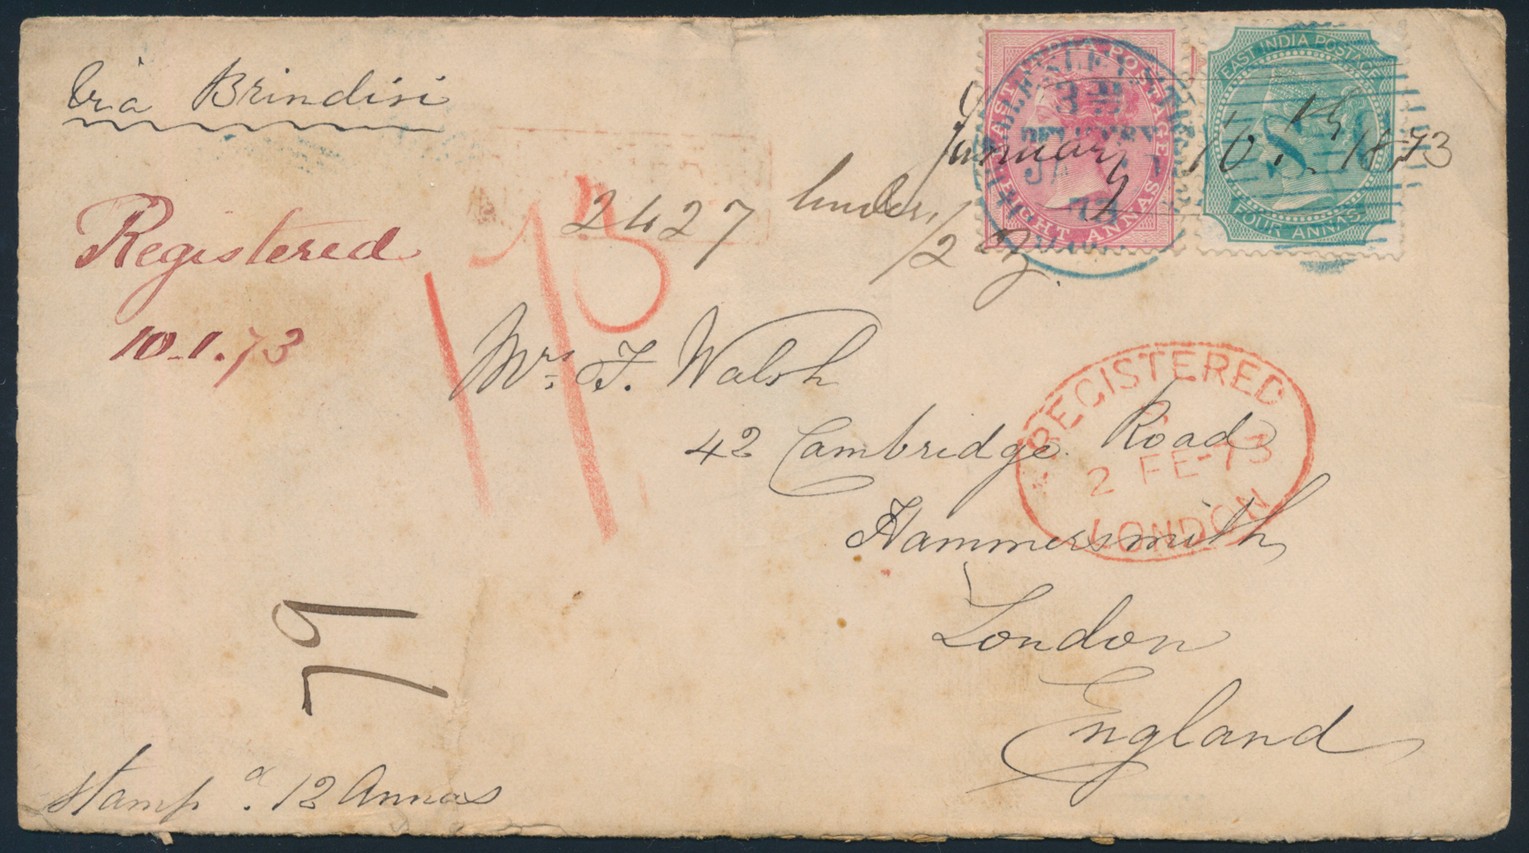 Via Brindisi
EAST INDIA POSTAGE
EIGHT ANNAS
EAST INDIA POSTAGE
FOUR ANNAS
WELLESLEY STREET
DELIVERY
73
January 10th 1873
Registered
10.1.73
2427 under
1/2 oz
Mrs. F. Walsh
42 Cambridge Road
Hammersmith
London
England
REGISTERED
2 FE-73
LONDON
79
Stamp a. 12 Annas